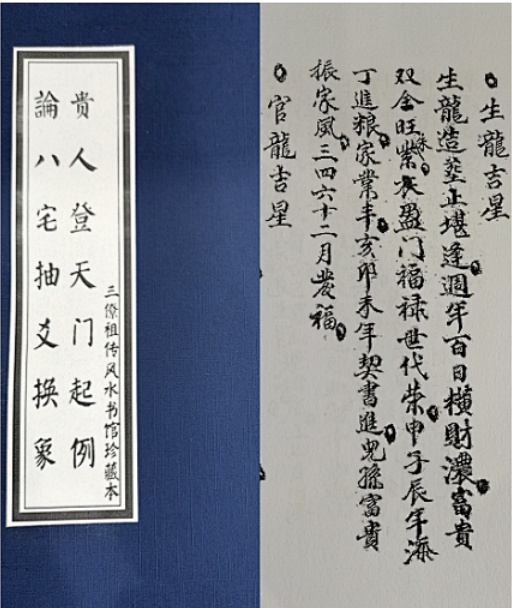 貴人登天门起例
論八宅抽爻换象
三僚祖传风水书馆珍藏本
生龍吉星
生龍造塟止堪逢週年百日横財濃富貴
双全旺朱紫衣盈门福禄世代荣申子辰年添
丁進粮家業丰亥卯未年契書進児孫富貴
振家風三四六十二月發福
官龍吉星